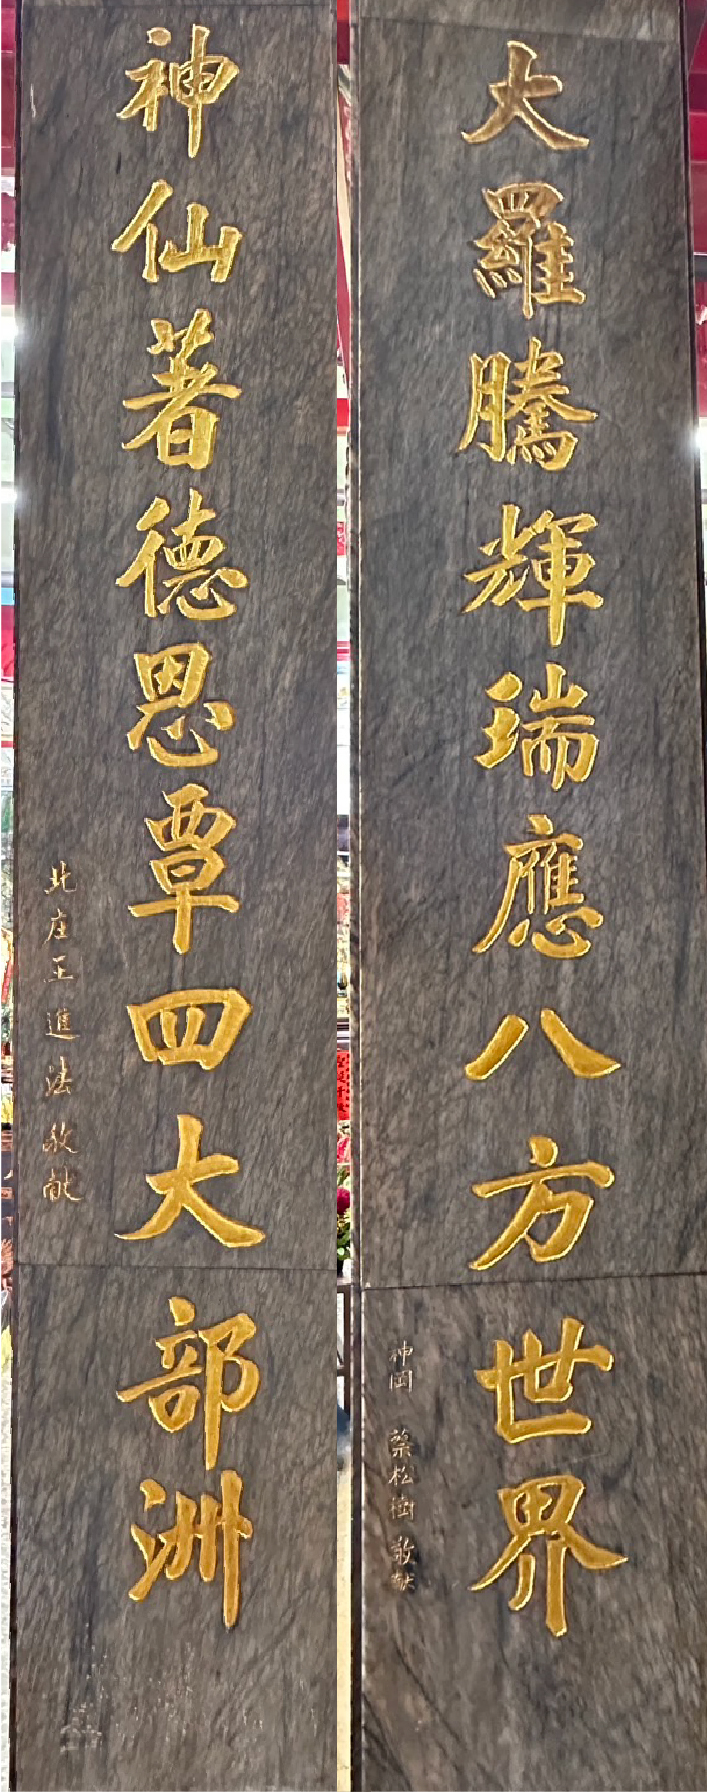 大羅騰輝瑞應八方世界
神岡 蔡松樹 敬献
神仙著德恩覃四大部洲
北庄王進法敬献